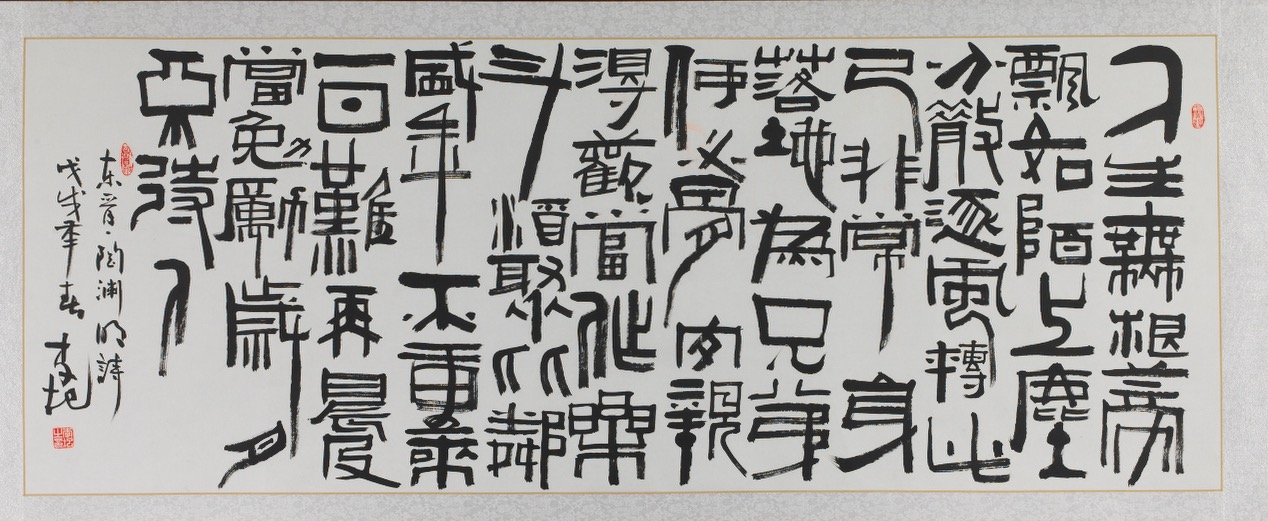 人生無根蒂
飄如陌上塵
分散逐風轉此
已非常身
落地為兄弟
何必骨肉親
得歡當作樂
斗酒聚比鄰
盛年不重來
一日難再晨及
當勉勵歲月
不待人
东晋、陶渊明詩
戊戌年春